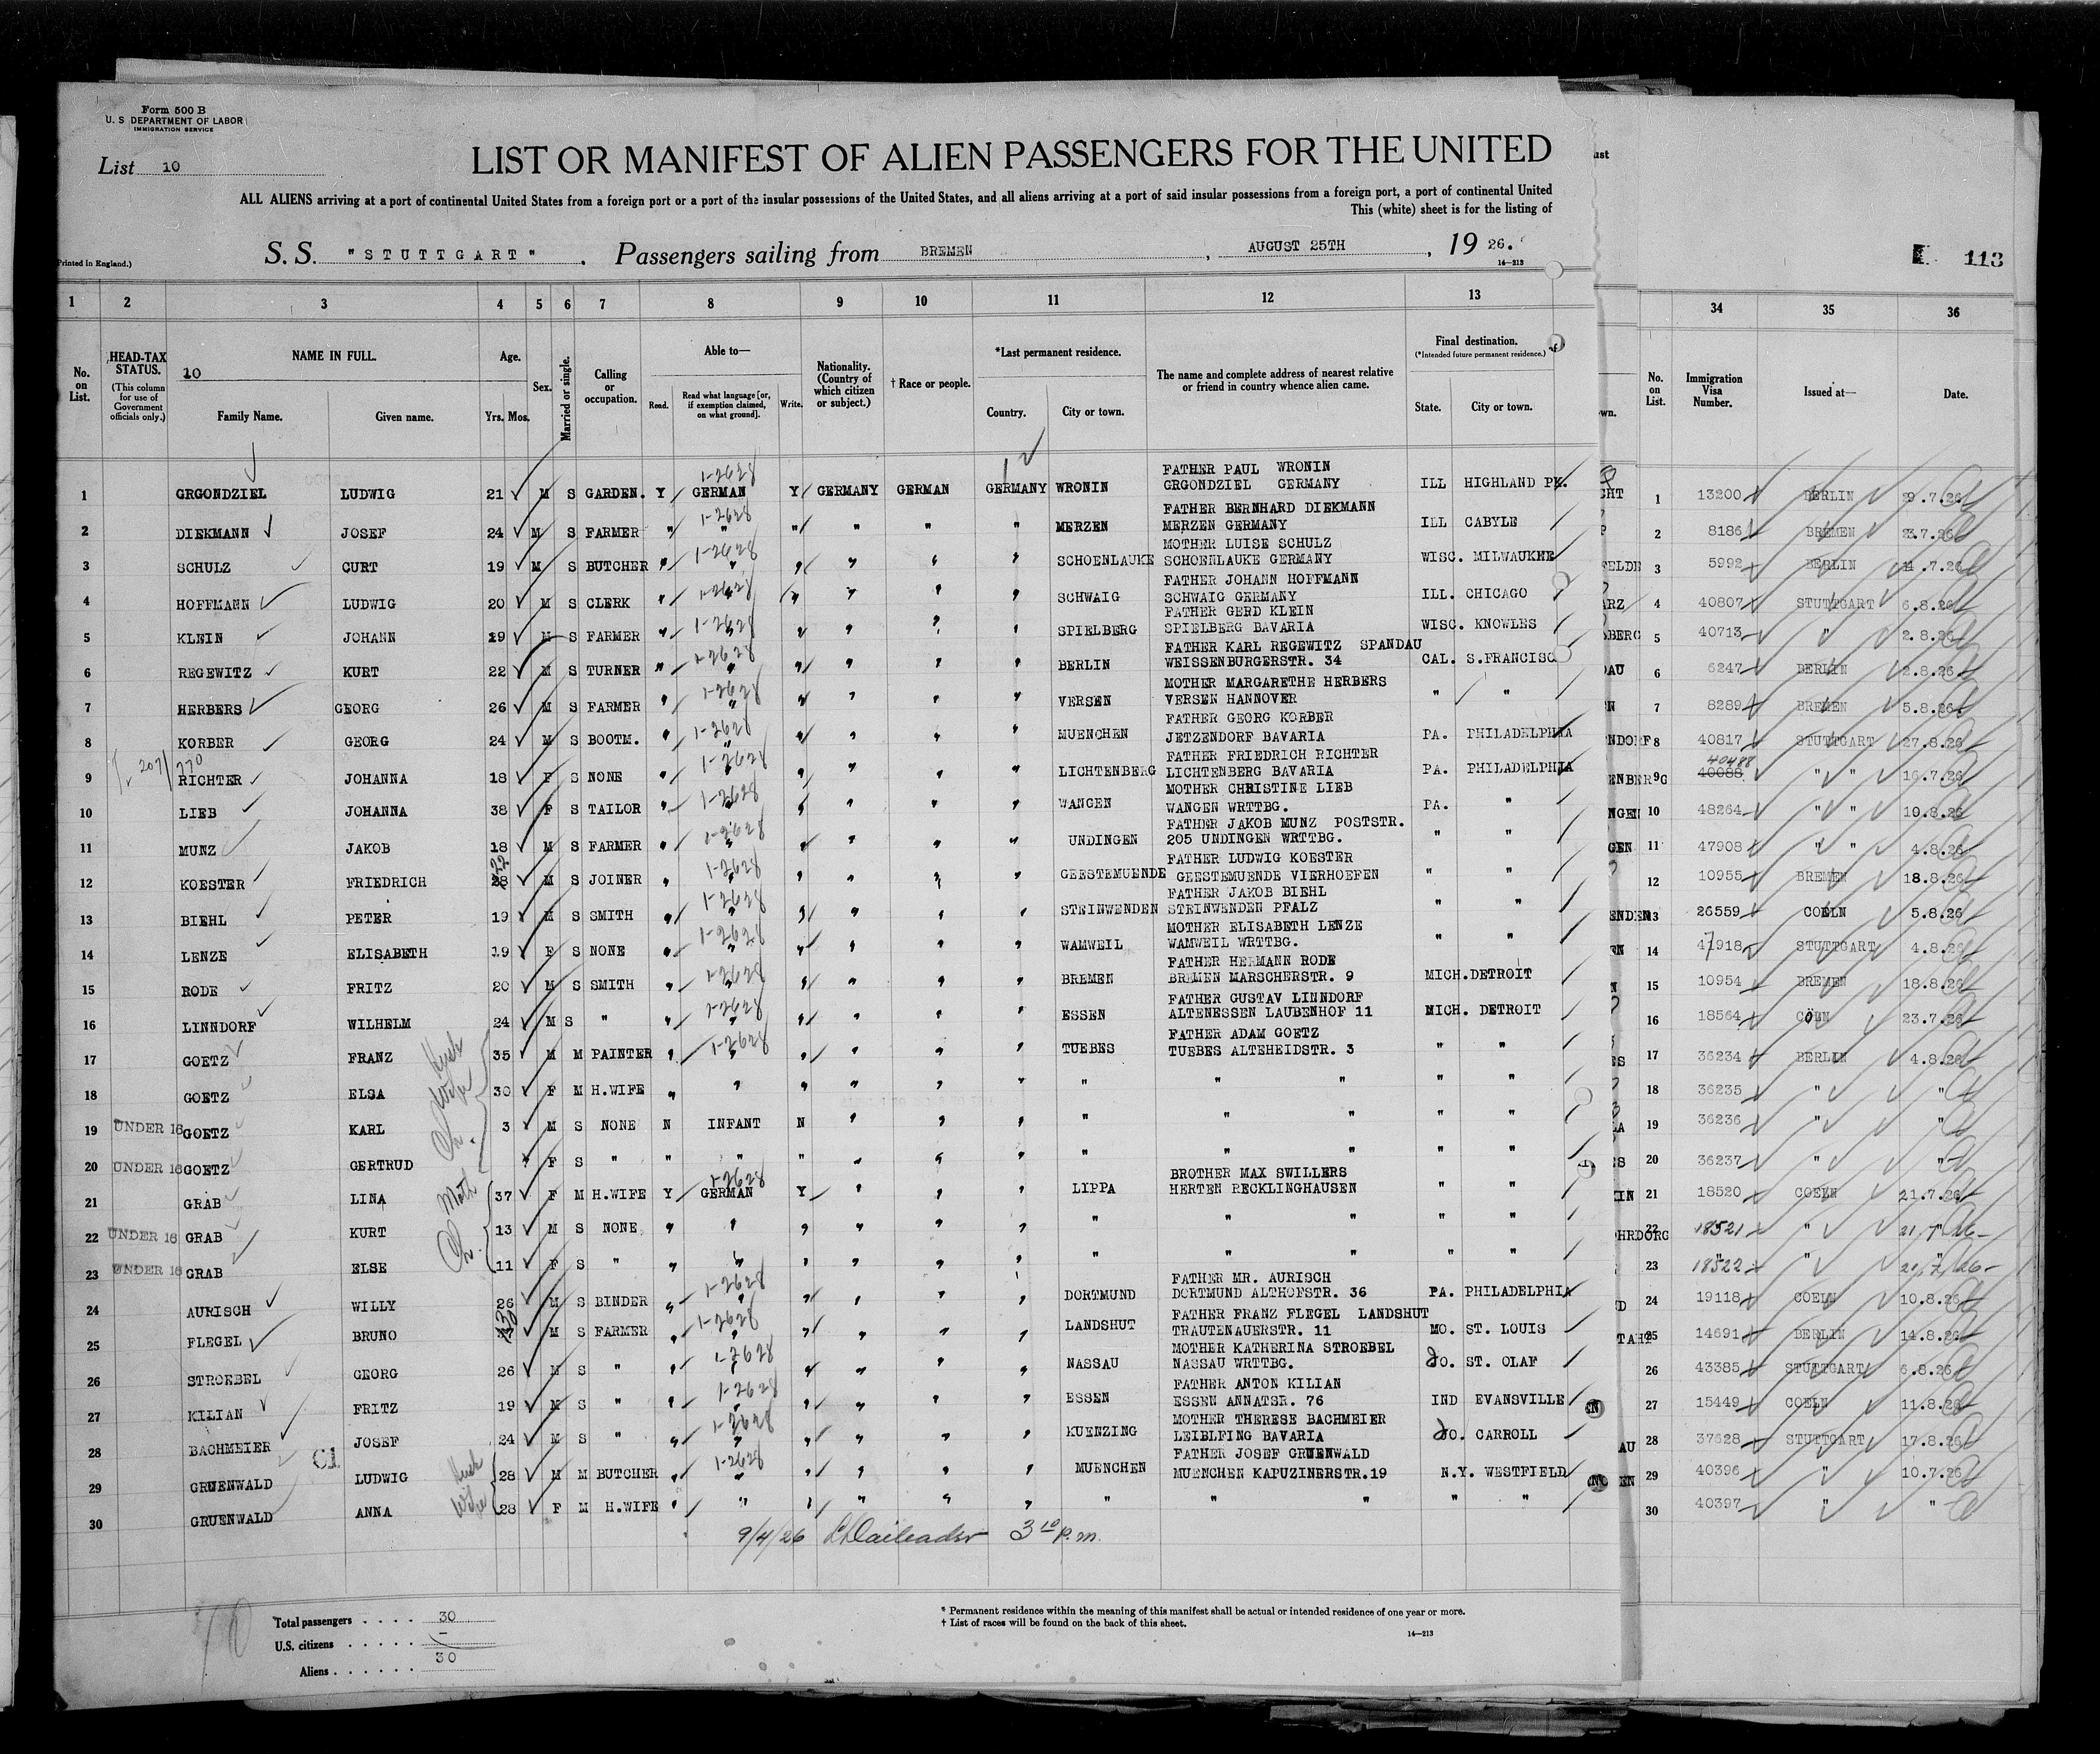 Form 500 B
U. S DEPARTMENT OF LABOR
IMMIGRATION SERVICE
List 10
LIST OR MANIFEST OF ALIEN PASSENGERS FOR THE UNITED
ALL ALIENS arriving at a port of continental United States from a foreign port or a port of the insular possessions of the United States, and all aliens arriving at a port of said insular possessions from a foreign port, a port of continental United
This (white) sheet is for the listing of
Printed in England.)
S. S. "STUTTGART" . Passengers sailing from BREMEN , AUGUST 25TH , 19 26.
14—213
113
1 2 3 4 5 6 7 8 9 10 11 12 13 34 35 36
No. on List. HEAD-TAX STATUS. (This column for use of Government officials only.) NAME IN FULL. 10 Family Name. Given name. Age. Yrs. Mos. Sex. Married or single. Calling or occupation. Able to— Read. Read what language [or, if exemption claimed, on what ground]. Write. Nationality. (Country of which citizen or subject.) † Race or people. *Last permanent residence. Country. City or town. The name and complete address of nearest relative or friend in country whence alien came. Final destination. (*Intended future permanent residence.) State. City or town. No. on List. Immigration Visa Number. Issued at— Date.
1 GRGONDZIEL LUDWIG 21 M S GARDEN. Y GERMAN Y GERMANY GERMAN GERMANY WRONIN FATHER PAUL WRONIN GRGONDZIEL GERMANY ILL HIGHLAND PK. 1 13200 BERLIN 29.7.26
2 DIEKMANN JOSEF 24 M S FARMER " " " " " " MERZEN FATHER BERNHARD DIEKMANN MERZEN GERMANY ILL CABYLE 2 8186 BREMEN 23.7.26
3 SCHULZ CURT 19 M S BUTCHER " " " " " " SCHOENLAUKE MOTHER LUISE SCHULZ SCHOENLAUKE GERMANY WISC. MILWAUKEE 3 5992 BERLIN .7.26
4 HOFFMANN LUDWIG 20 M S CLERK " " " " " " SCHWAIG FATHER JOHANN HOFFMANN SCHWAIG GERMANY ILL. CHICAGO 4 40807 STUTTGART 6.8.26
5 KLEIN JOHANN 19 M S FARMER " " " " " " SPIELBERG FATHER GERD KLEIN SPIELBERG BAVARIA WISC. KNOWLES 5 40713 " 2.8.26
6 REGEWITZ KURT 22 M S TURNER " " " " " " BERLIN FATHER KARL REGEWITZ SPANDAU WEISSENBURGERSTR. 34 CAL. S.FRANCISC 6 6247 BERLIN 2.8.26
7 HERBERS GEORG 26 M S FARMER " " " " " " VERSEN MOTHER MARGARETHE HERBERS VERSEN HANNOVER " " 7 8289 BREMEN 5.8.26
8 KORBER GEORG 24 M S BOOTM. " " " " " " MUENCHEN FATHER GEORG KORBER JETZENDORF BAVARIA PA. PHILADELPHIA 8 40817 STUTTGART 27.8.26
9 RICHTER JOHANNA 18 F S NONE " " " " " " LICHTENBERG FATHER FRIEDRICH RICHTER LICHTENBERG BAVARIA PA. PHILADELPHIA 9 40088 40488 " " 16.7.26
10 LIEB JOHANNA 38 F S TAILOR " " " " " " WANGEN MOTHER CHRISTINE LIEB WANGEN WRTTBG. PA. " 10 48264 " " 10.8.26
11 MUNZ JAKOB 18 M S FARMER " " " " " " UNDINGEN FATHER JAKOB MUNZ POSTSTR. 205 UNDINGEN WRTTBG. " " 11 47908 " " 4.8.26
12 KOESTER FRIEDRICH 22 M S JOINER " " " " " " GEESTEMUENDE FATHER LUDWIG KOESTER GEESTEMUENDE VIERHOEFEN " " 12 10955 BREMEN 18.8.26
13 BIEHL PETER 19 M S SMITH " " " " " " STEINWENDEN FATHER JAKOB BIEHL STEINWENDEN PFALZ " " 13 26559 COELN 5.8.26
14 LENZE ELISABETH 19 F S NONE " " " " " " WAMWEIL MOTHER ELISABETH LENZE WAMWEIL WRTTBG. " " 14 47918 STUTTGART 4.8.26
15 RODE FRITZ 20 M S SMITH " " " " " " BREMEN FATHER HERMANN RODE BREMEN MARSCHERSTR. 9 MICH.DETROIT 15 10954 BREMEN 18.8.26
16 LINNDORF WILHELM 24 M S " " " " " " " ESSEN FATHER GUSTAV LINNDORF ALTENESSEN LAUBENHOF 11 MICH. DETROIT 16 18564 CÖLN 23.7.26
17 GOETZ FRANZ 35 M M PAINTER " " " " " " TUEBES FATHER ADAM GOETZ TUEBES ALTEHEIDSTR. 3 " " 17 36234 BERLIN 4.8.26
18 GOETZ ELSA 30 F M H.WIFE " " " " " " " " " " " 18 36235 " "
19 UNDER 16 GOETZ KARL 3 M S NONE N INFANT N " " " " " " " " 19 36236 " "
20 UNDER 16 GOETZ GERTRUD " F S " " " " " " " " " " " " 20 36237 " "
21 GRAB LINA 37 F M H.WIFE Y GERMAN Y " " " LIPPA BROTHER MAX SWILLERS HERTEN RECKLINGHAUSEN " " 21 18520 COELN 21.7.26
22 UNDER 16 GRAB KURT 13 M S NONE " " " " " " " " " " " 22 18521 " 21.7.26
23 UNDER 16 GRAB ELSE 11 F S " " " " " " " " " " " " 23 18522 " 21.7.26
24 AURISCH WILLY 26 M S BINDER " " " " " " DORTMUND FATHER MR. AURISCH DORTMUND ALTHOFSTR. 36 PA. PHILADELPHIA 24 19118 COELN 10.8.26
25 FLEGEL BRUNO M S FARMER " " " " " " LANDSHUT FATHER FRANZ FLEGEL LANDSHUT TRAUTENAUERSTR. 11 MO. ST. LOUIS 25 14691 BERLIN 14.8.26
26 STROEBEL GEORG 26 M S " " " " " " " NASSAU MOTHER KATHERINA STROEBEL NASSAU WRTTBG. JO. ST. OLAF 26 43385 STUTTGART 6.8.26
27 KILIAN FRITZ 19 M S " " " " " " " ESSEN FATHER ANTON KILIAN ESSEN ANNATSR. 76 IND EVANSVILLE 27 15449 COELN 11.8.26
28 BACHMEIER JOSEF 24 M S " " " " " " " KUENZING MOTHER THERESE BACHMEIER LEIBLFING BAVARIA JO. CARROLL 28 37628 STUTTGART 17.8.26
29 GRUENWALD LUDWIG 28 M M BUTCHER " " " " " " MUENCHEN FATHER JOSEF GRUENWALD MUENCHEN KAPUZINERSTR.19 N.Y. WESTFIELD 29 40396 " 10.7.26
30 GRUENWALD ANNA 28 F M H.WIFE " " " " " " " " " " " 30 40397 " "
9/4/26 3 10 p.m.
Total passengers . . . . 30
U.S. citizens . . . . . –
Aliens . . . . . . 30
* Permanent residence within the meaning of this manifest shall be actual or intended residence of one year or more.
† List of races will be found on the back of this sheet.
14—213